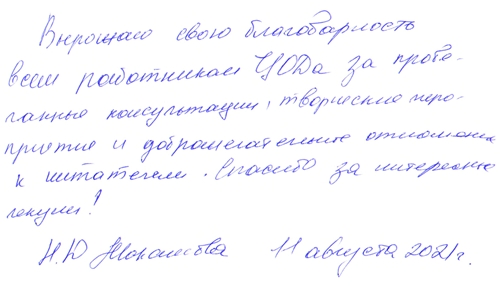 Выражаю свою благодарность
всем работникам ЦОДа за прове-
данные консультации, творческие меро-
приятия и доброжелательные отношения
к читателем. Спасибо за интересные
лекции!
Н.Ю 11 августа 2021г.